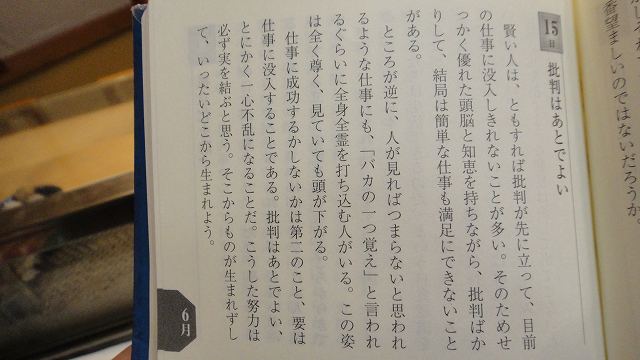 希望ましいのではないだろうか。
15日
批判はあとでよい
賢い人は、ともすれば批判が先に立って、目前
の仕事に没入しきれないことが多い。そのためせ
っかく優れた頭脳と知恵を持ちながら、批判ばか
りして、結局は簡単な仕事も満足にできないこと
がある。
ところが逆に、人が見ればつまらないと思われ
るような仕事にも、「バカの一つ覚え」と言われ
るぐらいに全身全霊を打ち込む人がいる。この姿
は全く尊く、見ていても頭が下がる。
仕事に成功するかしないかは第二のこと、要は
仕事に没入することである。批判はあとでよい、
とにかく一心不乱になることだ。こうした努力は
必ず実を結ぶと思う。そこからものが生まれずし
て、いったいどこから生まれよう。
6月